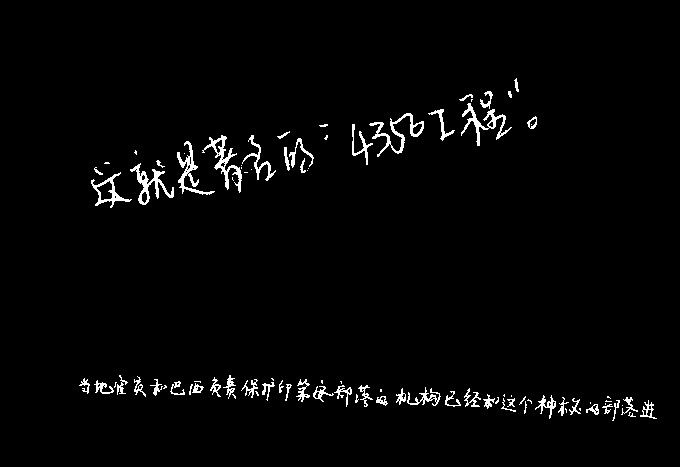 这就是著名的“4350工程”。
当地官员和巴西负责保护印第安部落的机构已经和这个神秘的部落进